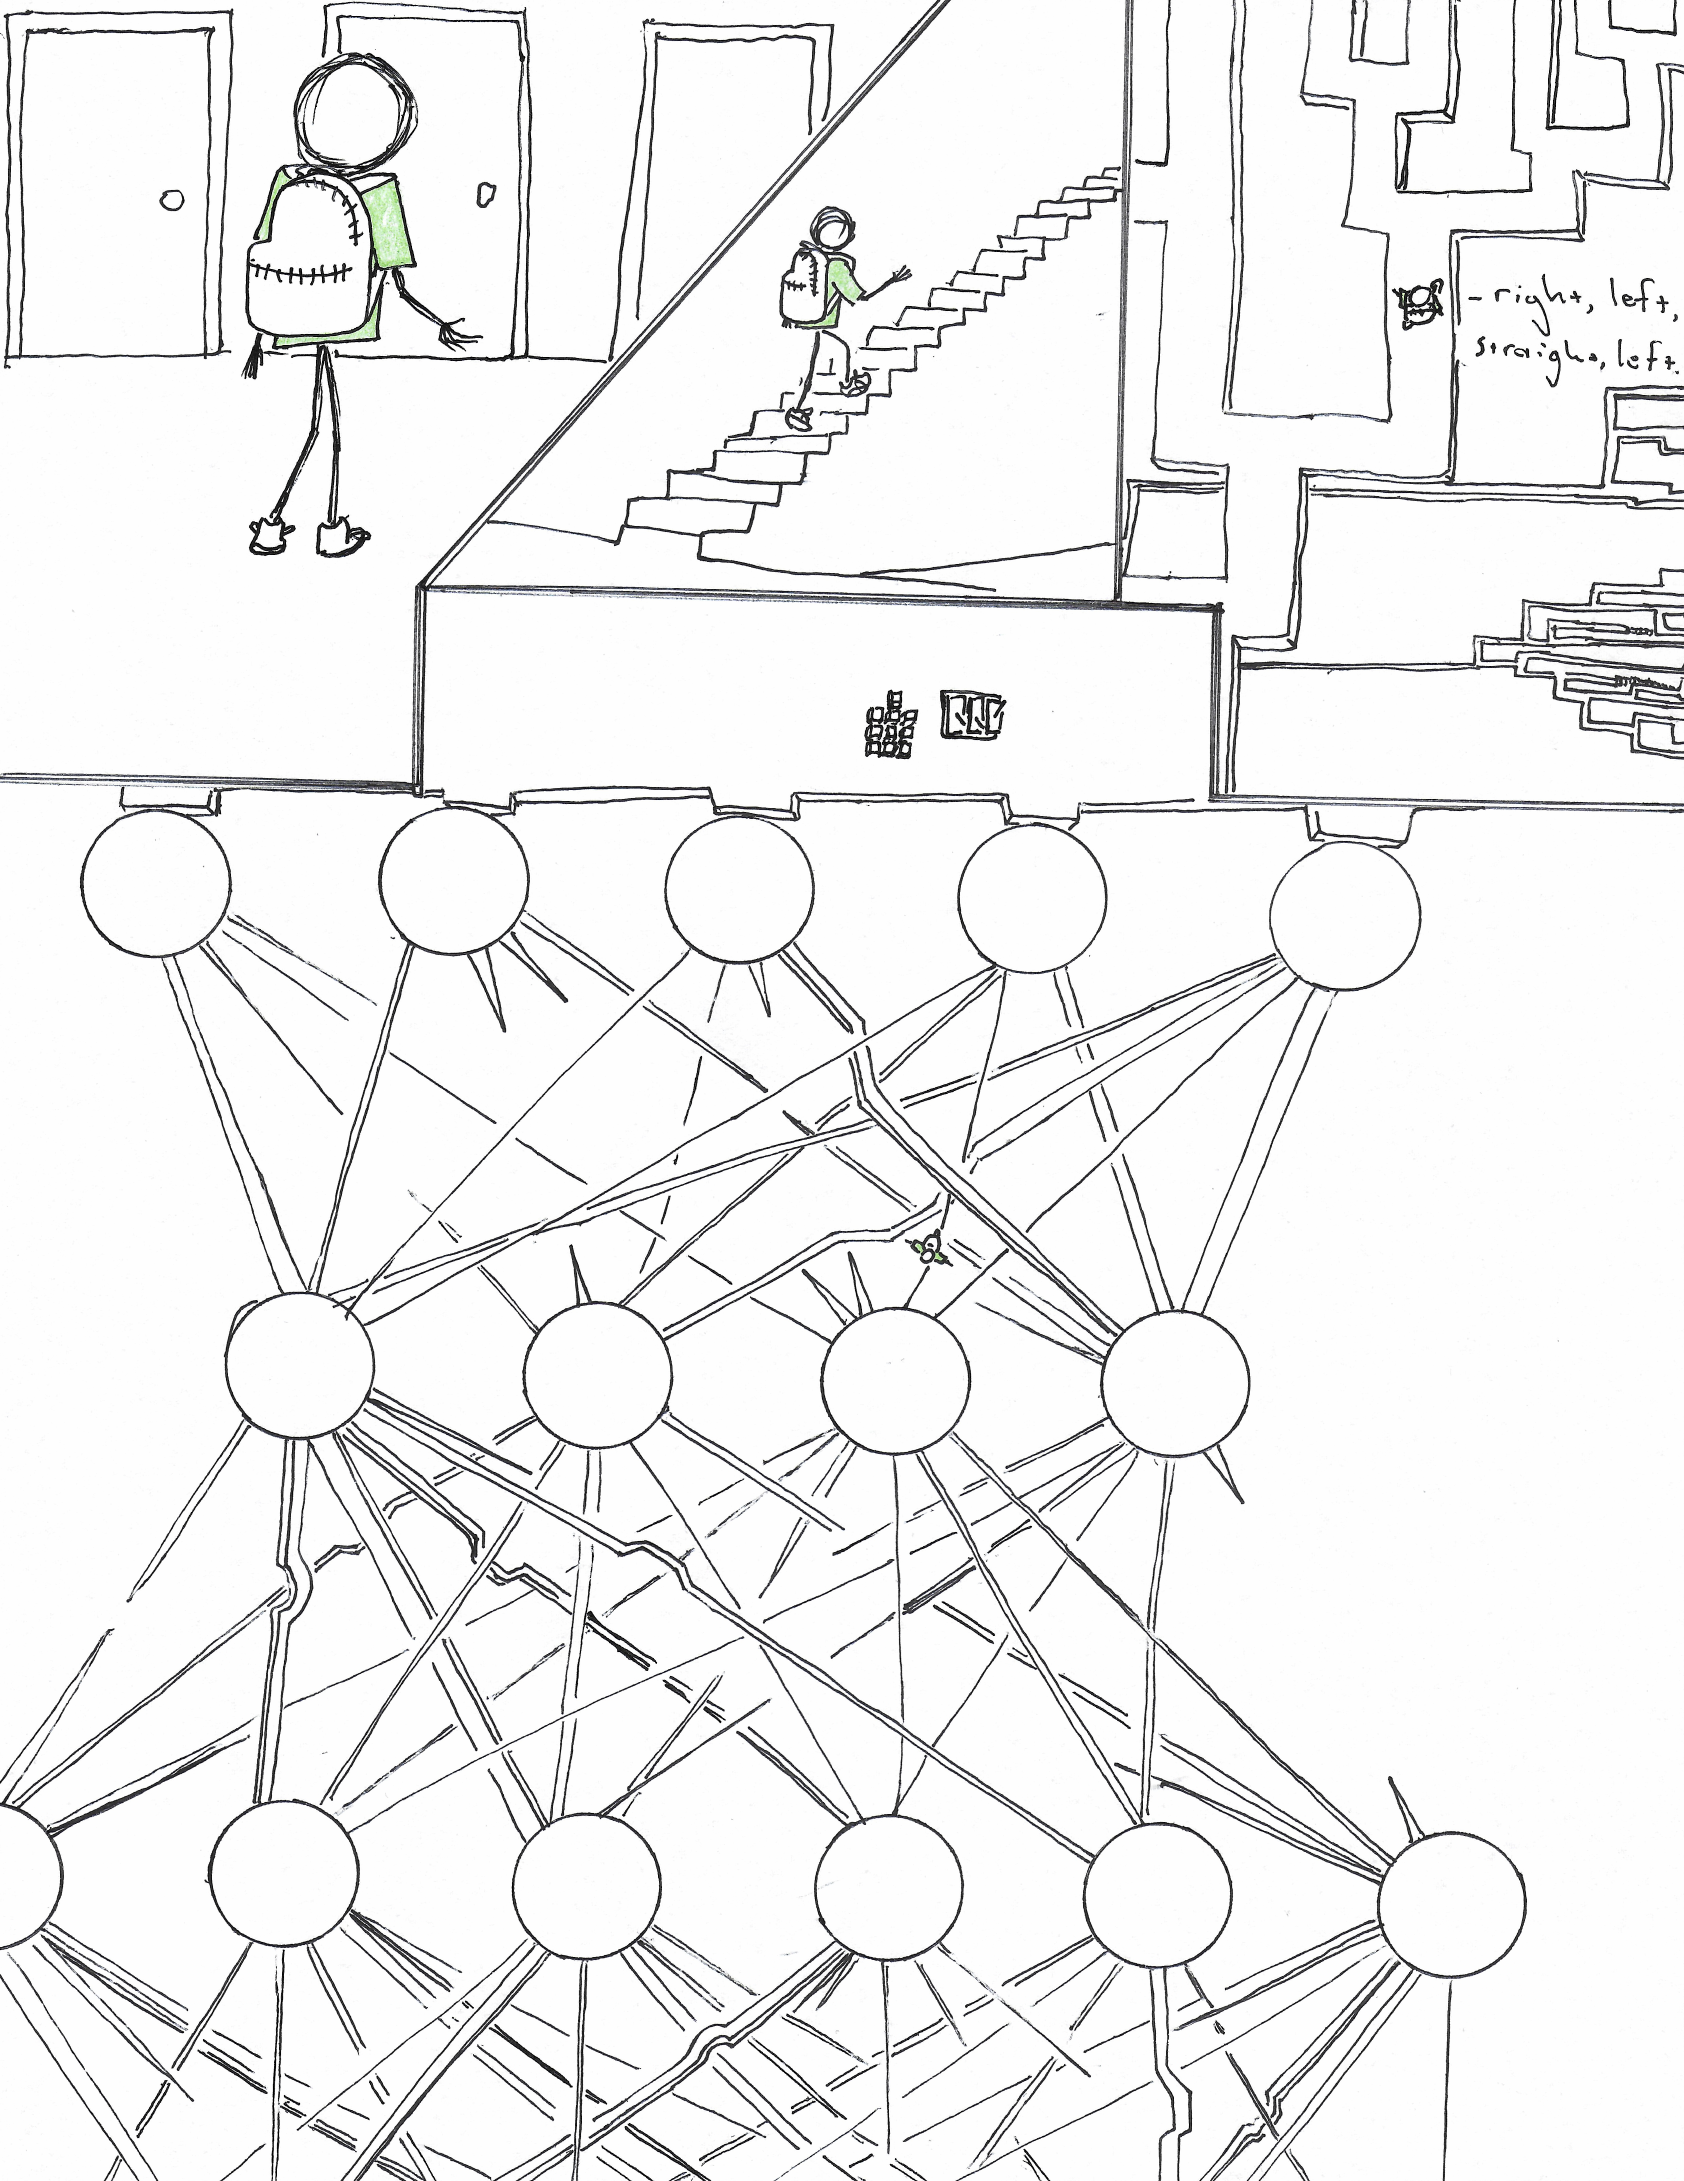 - right, left,
straight, left.